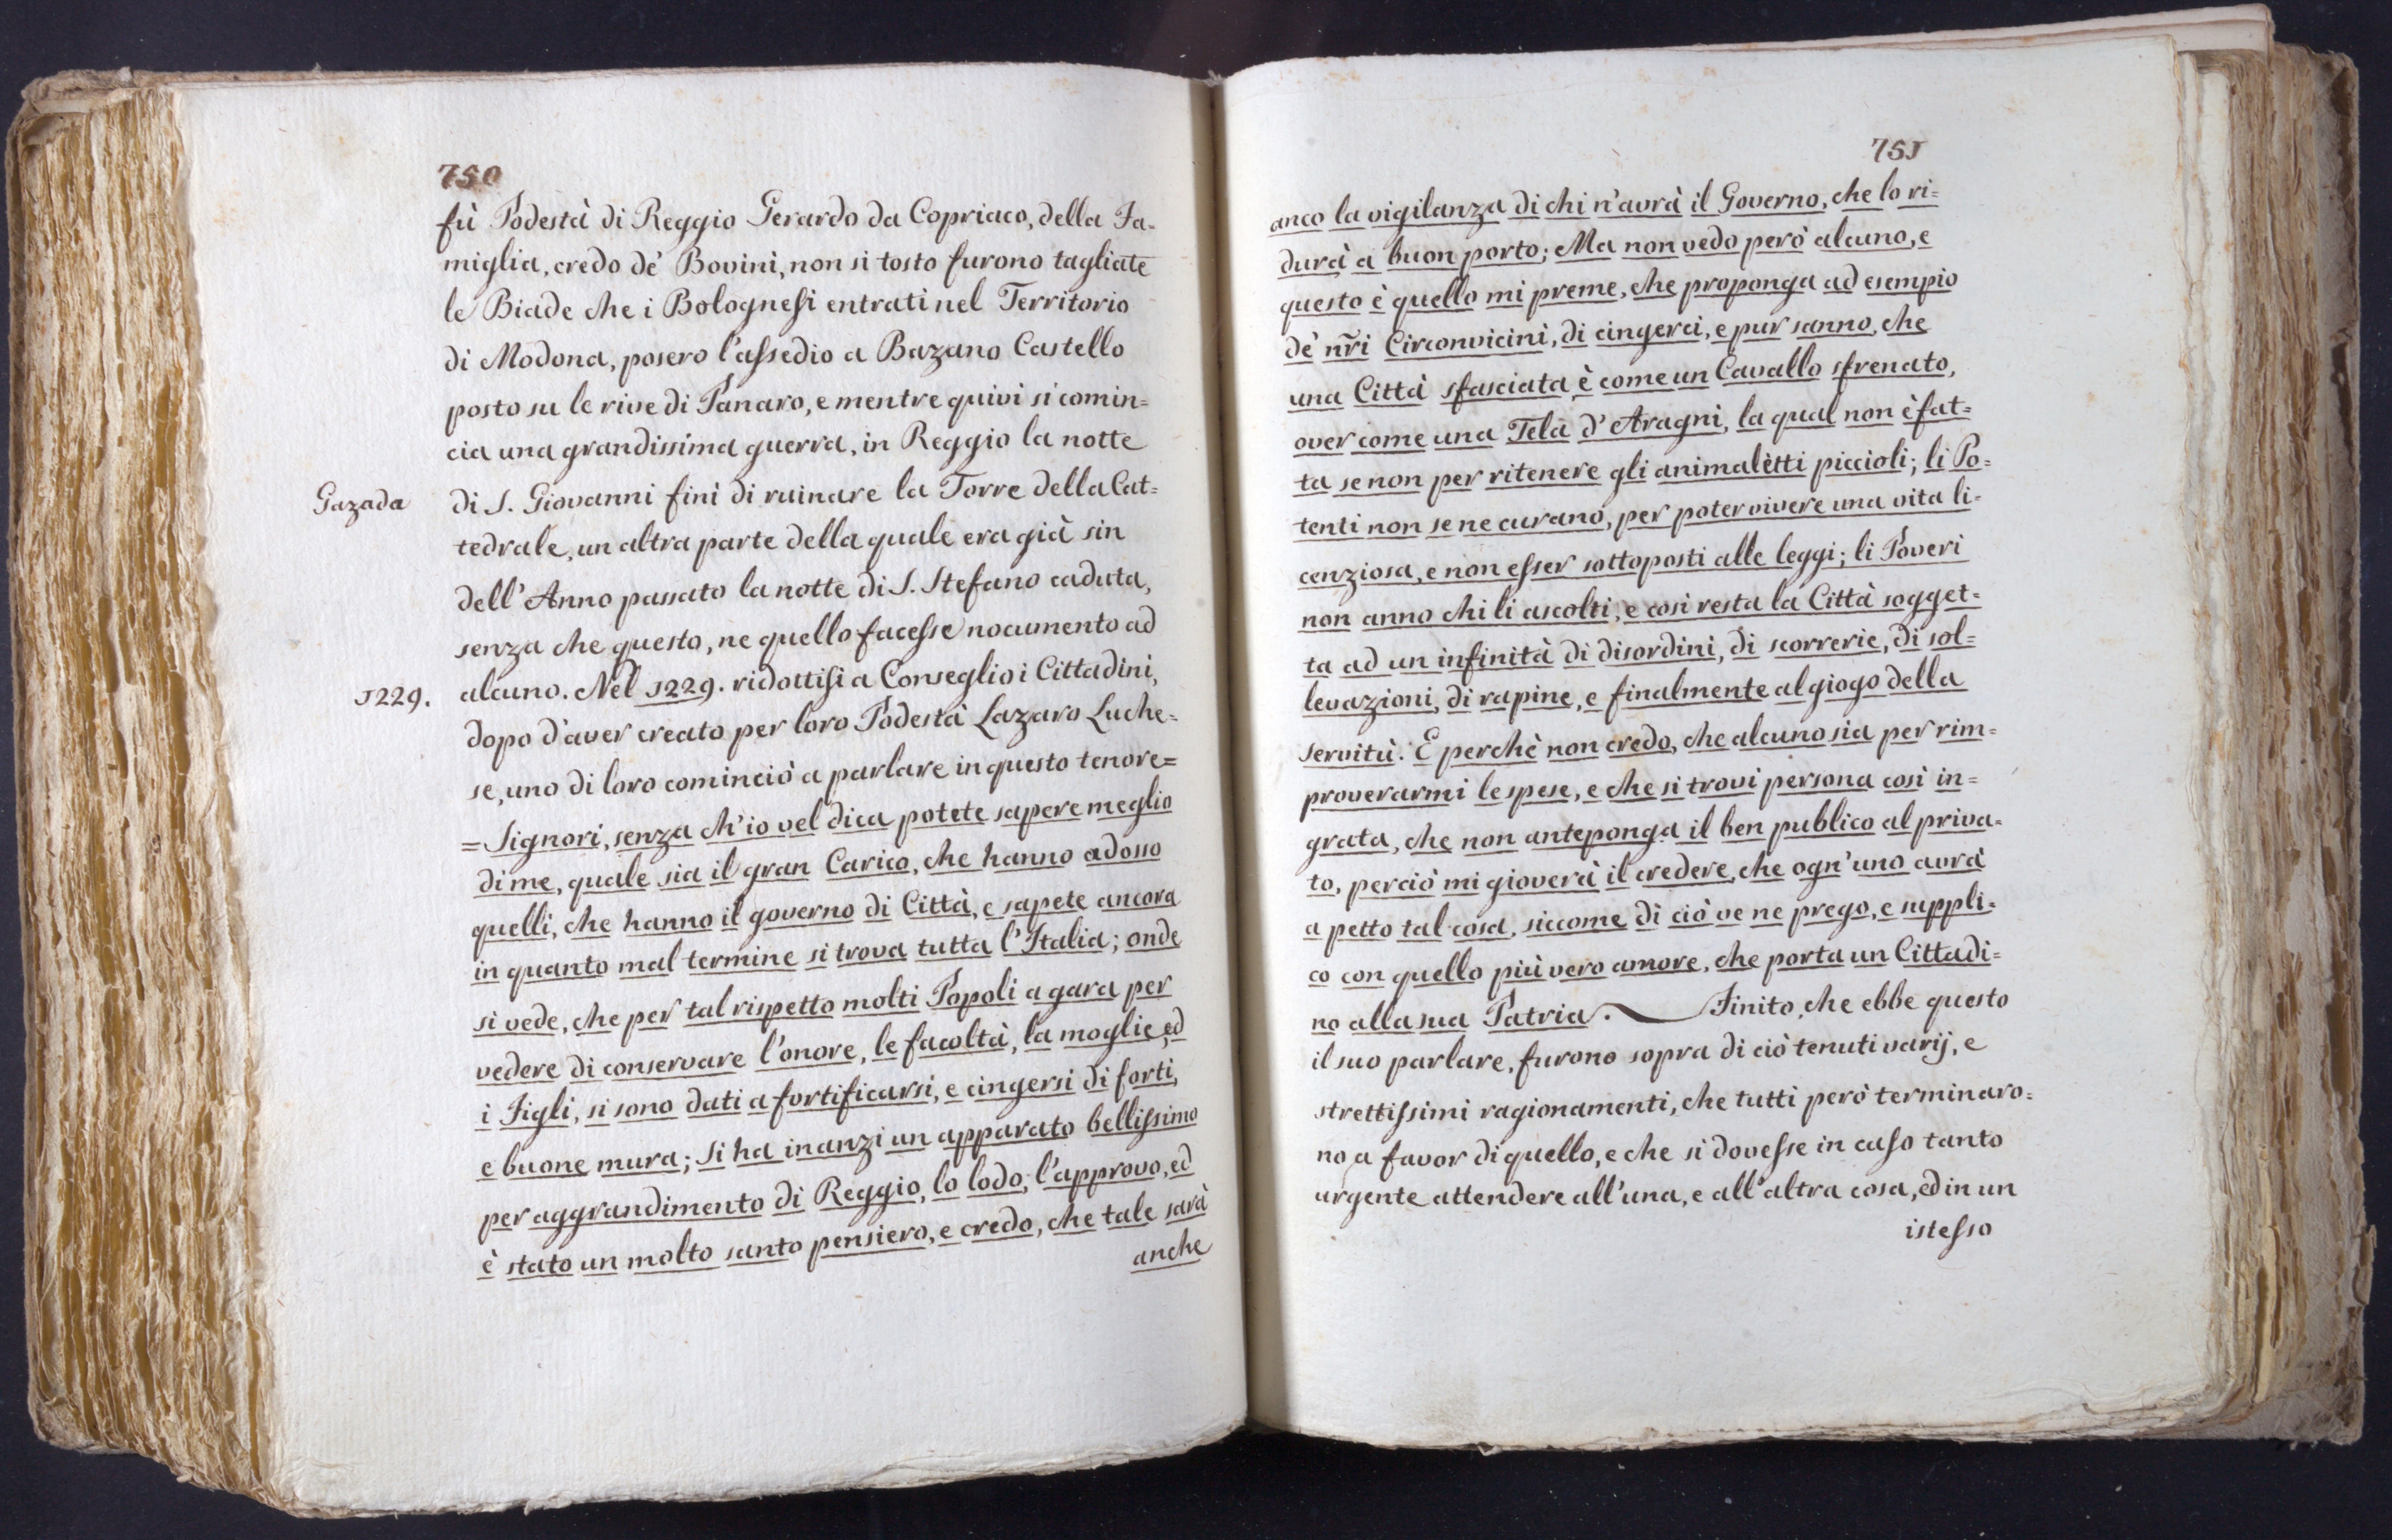 750
fù Podestà di Reggio Gerardo da Copriaco, della Fa-
miglia, credo dè Bovini, non si tosto furono tagliate
le Biade che i Bolognesi entrati nel Territorio
di Modona, posero l'assedio a Bazano Castello
posto su le rive di Panaro, e mentre quivi si comin=
cia una grandissima guerra, in Reggio la notte
Gazada
di S. Giovanni finì di ruinare la Torre della Cat=
tedrale, un altra parte della quale era già sin
dell'Anno passato la notte di S. Stefano caduta,
senza che questo, ne quello facesse nocumento ad
1229.
alcuno. Nel 1229. ridottisi a Conseglio i Cittadini,
dopo d'aver creato per loro Podestà Lazaro Luche=
se, uno di loro cominciò a parlare in questo tenore=
=Signori, senza ch'io vel dica potete sapere meglio
di me, quale sia il gran Carico, che hanno adosso
quelli, che hanno il governo di Città, e sapete ancora
in quanto mal termine si trova tutta l'Italia; onde
si vede, che per tal rispetto molti Popoli a gara per
vedere di conservare l'onore, le facoltà, la moglie, ed
i Figli, si sono dati a fortificarsi, e cingersi di forti,
e buone mura; Si ha inanzi un apparato bellissimo
per aggrandimento di Reggio, lo lodo, l'approvo, ed
è stato un molto santo pensiero, e credo, che tale sarà
anche
751
anco la vigilanza di chi n'avrà il Governo, che lo ri=
durà a buon porto; Ma non vedo però alcuno, e
questo è quello mi preme, che proponga ad esempio
dè nr̃i Circonvicini, di cingerci, e pur sanno, che
una Città sfasciata, è come un Cavallo sfrenato,
over come una Tela d'Aragni, la qual non è fat=
ta se non per ritenere gli animaletti piccioli; li Po=
tenti non se ne curano, per poter vivere una vita li-
cenziosa, e non esser sottoposti alle leggi; li Poveri
non anno chi li ascolti, e così resta la Città sogget=
ta ad un infinità di disordini, di scorrerie, di sol=
levazioni, di rapine, e finalmente al giogo della
servitù. E perchè non credo, che alcuno sia per rim=
proverarmi le spese, e che si trovi persona così in=
grata, che non anteponga il ben publico al priva=
to, perciò mi gioverà il credere, che ogn'uno avrà
a petto tal cosa, siccome di ciò ve ne prego, e suppli=
co con quello più vero amore, che porta un Cittadi=
no alla sua Patria. Finito, che ebbe questo
il suo parlare, furono sopra di ciò tenuti varij, e
strettissimi ragionamenti, che tutti però terminaro=
no a favor di quello, e che si dovesse in caso tanto
urgente attendere all'una, e all'altra cosa, ed in un
istesso